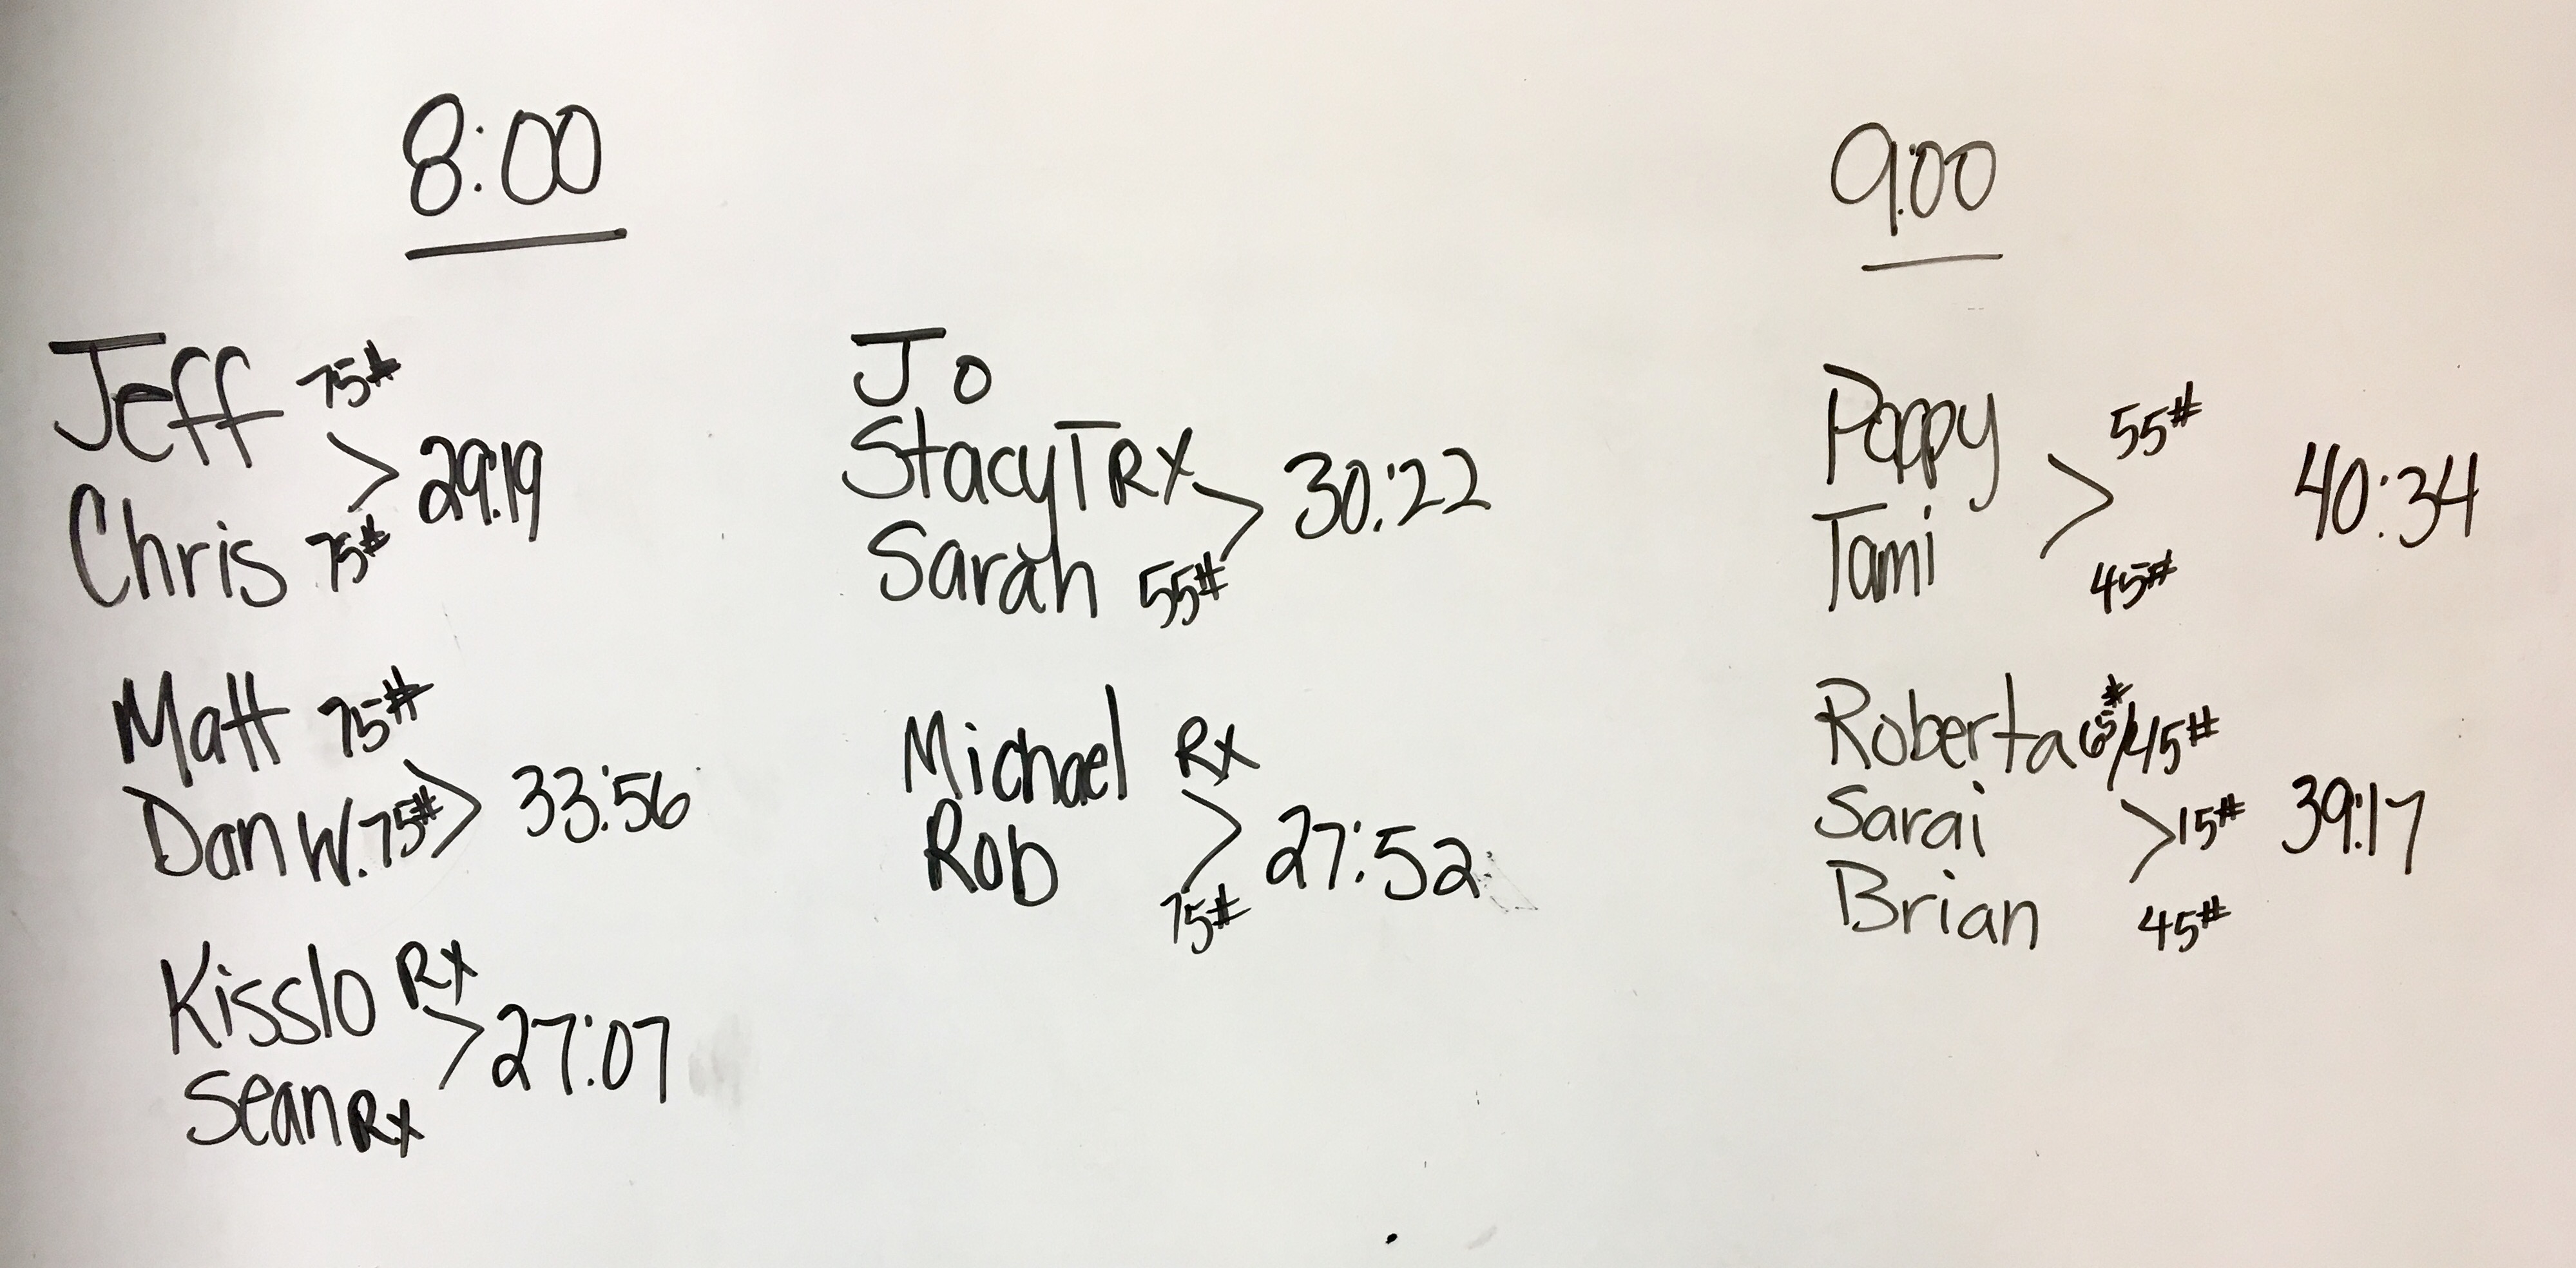 8:00
Jeff 75#
> 29:19
Chris 75#
Matt 75#
Dan W. 75# > 33:56
Kisslo Rx
> 27:07
Sean Rx
Jo
Stacy T RX
> 30:22
Sarah 55#
Michael Rx
> 27:52
Rob 75#
9:00
Poppy 55#
> 40:34
Tami 45#
Roberta 65#/45#
Sarai > 15# 39:17
Brian 45#